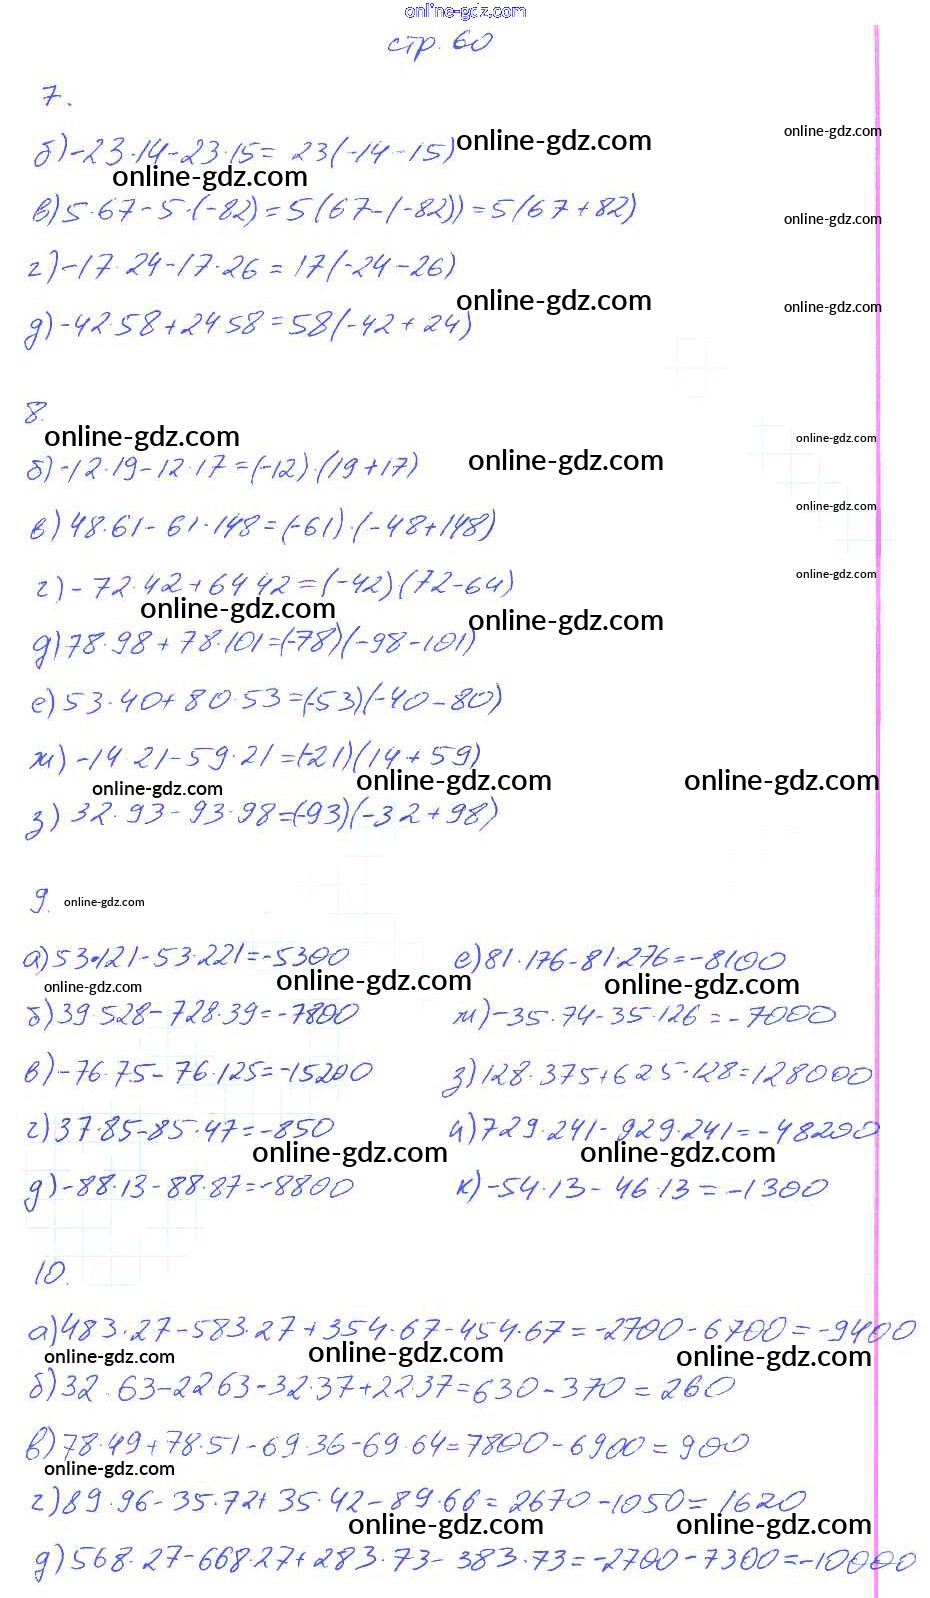 online-gdz.com
стр. 60
7.
б) -23·14-23·15= 23(-14-15)
online-gdz.com
online-gdz.com
online-gdz.com
в) 5·67-5·(-82)=5(67-(-82))=5(67+82)
online-gdz.com
г) -17·24-17·26=17(-24-26)
online-gdz.com
online-gdz.com
д) -42·58+24 58=58(-42+24)
8.
online-gdz.com
online-gdz.com
б) -12·19-12·17=(-12)·(19+17)
online-gdz.com
online-gdz.com
в) 48·61-61·148=(-61)·(-48+148)
online-gdz.com
г) -72·42+64 42=(-42)(72-64)
online-gdz.com
online-gdz.com
д) 78·98+78·101=(-78)(-98-101)
е) 53·40+80·53=(-53)(-40-80)
ж) -14·21-59·21=(-21)(14+59)
online-gdz.com
online-gdz.com
online-gdz.com
з) 32·93-93·98=(-93)(-32+98)
9.
online-gdz.com
а) 53·121-53·221=-5300
е) 81·176-81·276=-8100
online-gdz.com
online-gdz.com
online-gdz.com
б) 39·528-728·39=-7800
ж) -35·74-35·126=-7000
в) -76·75-76·125=-15200
з) 128·375+625·128=128000
г) 37·85-85·47=-850
и) 729·241-929·241=-48200
online-gdz.com
online-gdz.com
д) -88·13-88·87=-8800
к) -54·13-46·13=-1300
10.
а) 483·27-583·27+354·67-454·67=-2700-6700=-9400
online-gdz.com
online-gdz.com
online-gdz.com
б) 32·63-22 63-32·37+22·37=630-370=260
в) 78·49+78·51-69·36-69·64=7800-6900=900
online-gdz.com
г) 89·96-35·72+35·42-89·66=2670-1050=1620
online-gdz.com
online-gdz.com
д) 568·27-668·27+283·73-383·73=-2700-7300=-10000